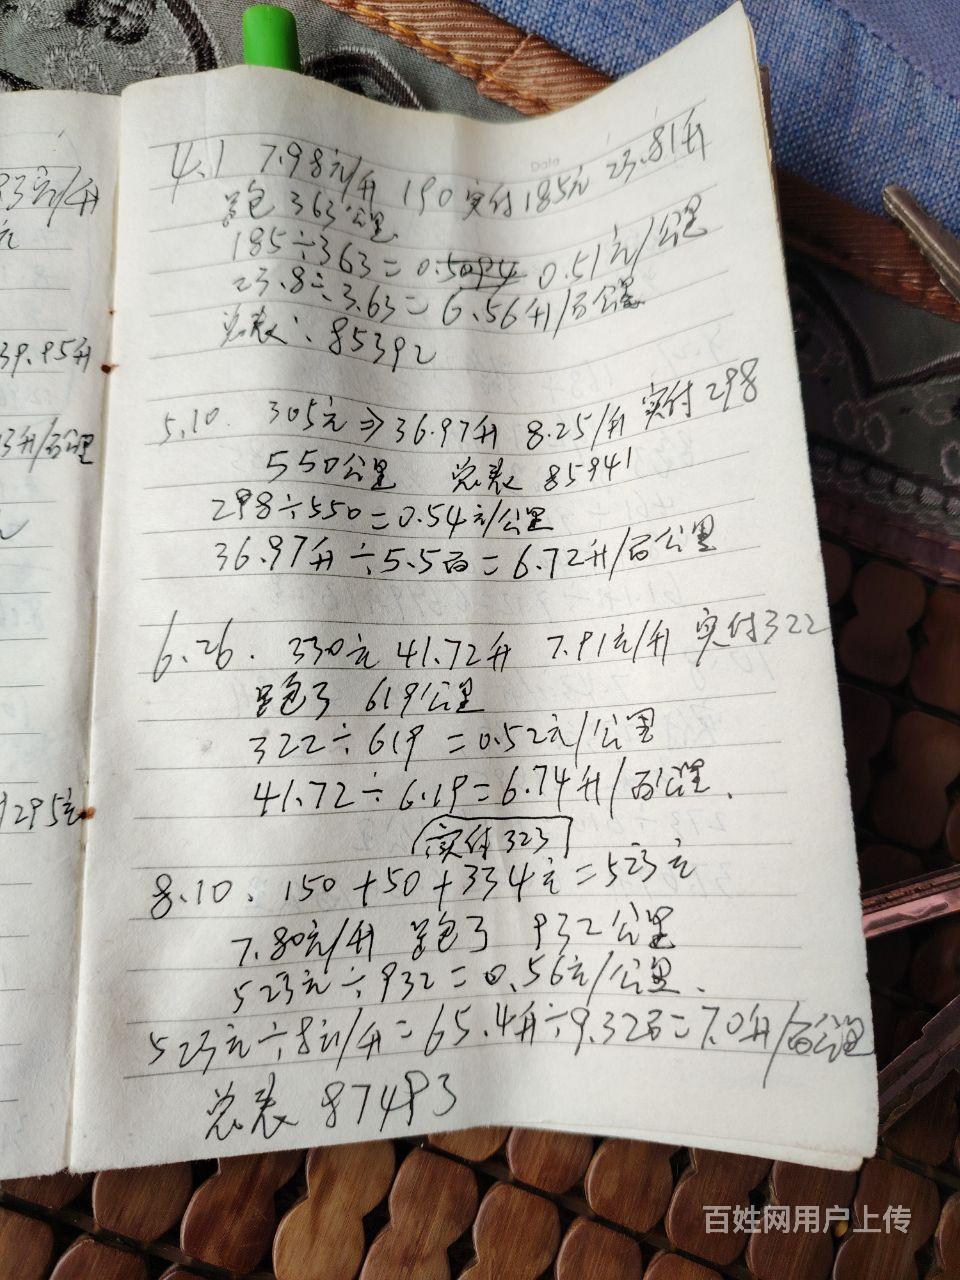 93元/升
元
39.95升
3升/百公里
295元
Date
4.1 7.98元/升 190 实付185元 23.81升
跑 363公里
185÷363=0.5094 0.51元/公里
23.8÷3.63=6.56升/百公里
总表:85392
5.10. 305元⇒36.97升 8.25/升 实付298
550公里 总表 85941
298÷550=0.54元/公里
36.97升÷5.5百=6.72升/百公里
6.26. 330元 41.72升 7.91元/升 实付322
跑了 619公里
322÷619=0.52元/公里
41.72÷6.19=6.74升/百公里.
实付323
8.10. 150+50+334元=523元
7.80元/升 跑了 932公里
523元÷932=0.56元/公里.
523元÷8元/升=65.4升÷9.32百=7.0升/百公里
总表 87483
百姓网用户上传